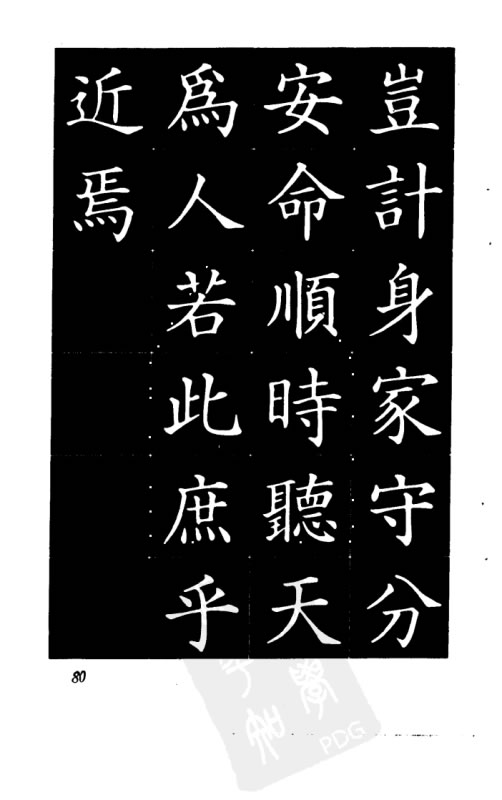 豈計身家守分
安命順時聽天
爲人若此庶乎
近焉
80
PDG